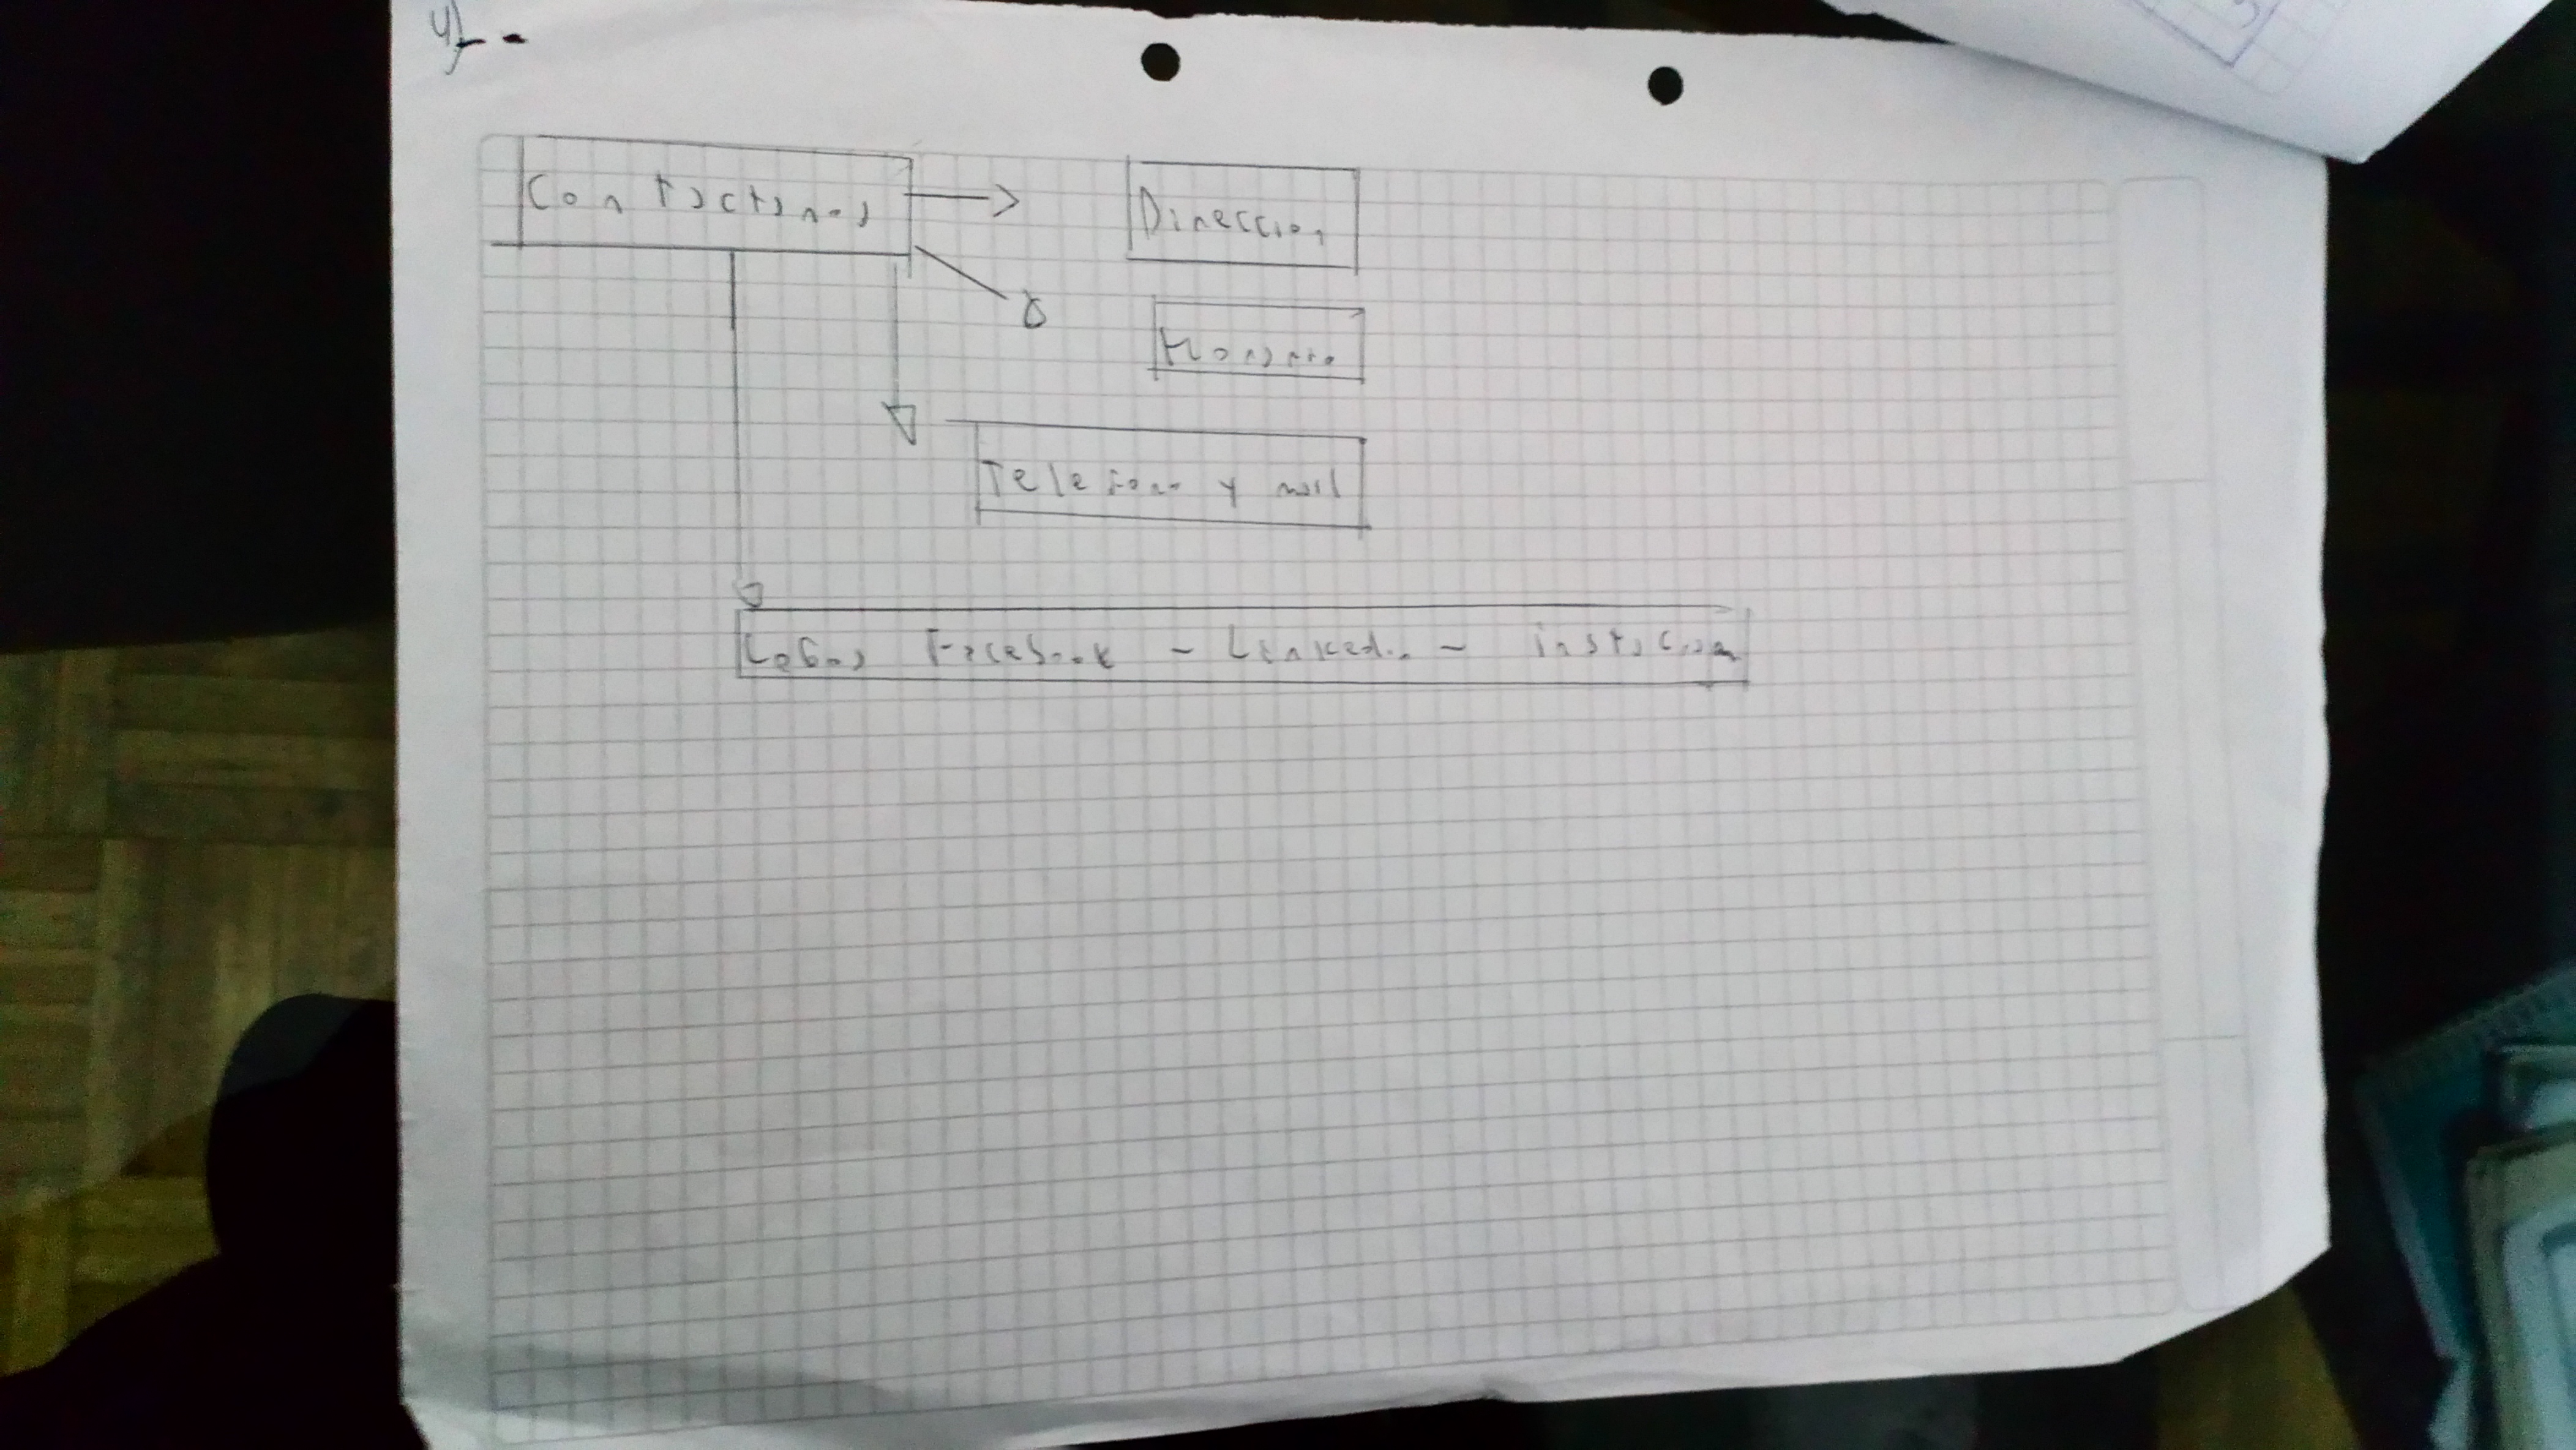 4)-.
Contactanos
Direccion
Horario
Telefono y mail
Logos Facebook - Linkedin - instagram